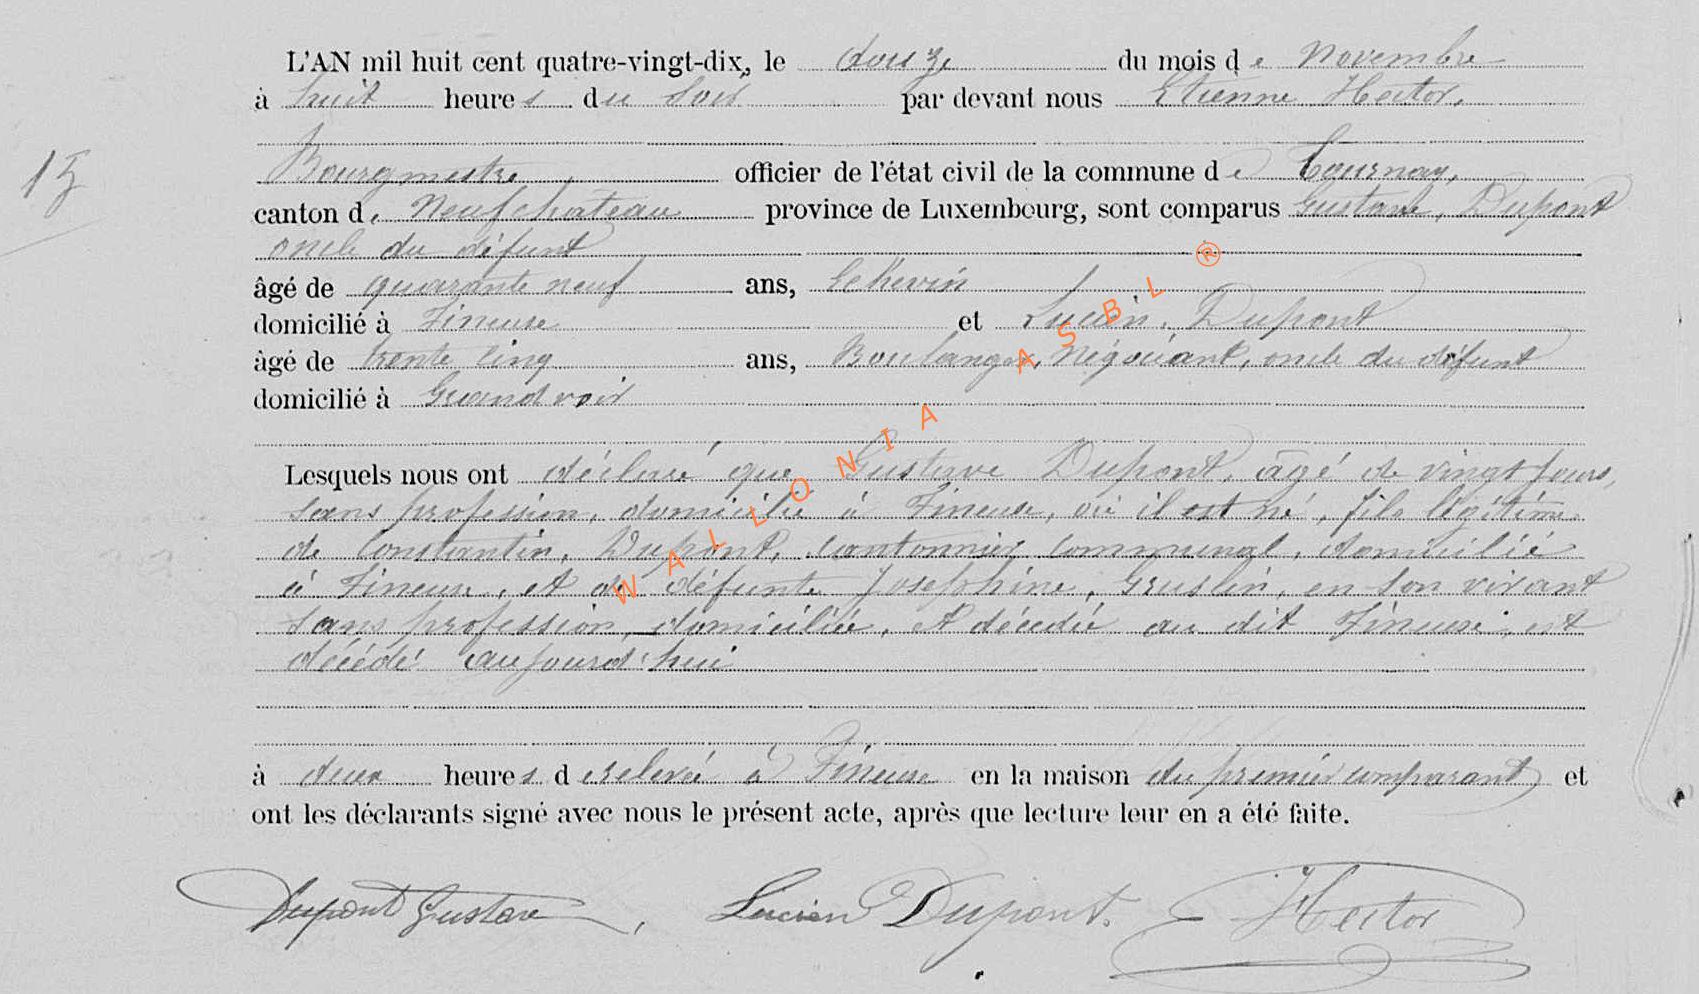 L'AN mil huit cent quatre-vingt-dix, le douze du mois de Novembre
à huit heures du soir par devant nous Etienne Hector,
15
Bourgmestre, officier de l'état civil de la commune de Tournay,
canton de Neufchateau province de Luxembourg, sont comparus Gustave, Dupont
oncle du défunt
âgé de quarante neuf ans, Echevin
domicilié à Fineuse et Lucien, Dupont
âgé de trente cinq ans, Boulanger, Négociant, oncle du défunt
domicilié à Grandvoir
Lesquels nous ont déclaré que Gustave Dupont, âgé de vingt jours,
sans profession, domicilié à Fineuse, où il est né, fils légitime
de Constantin, Dupont, cantonnier communal, domicilié
à Fineuse, et de défunte Joséphine, Gruslin, en son vivant
sans profession, domiciliée, et décédée au dit Fineuse, est
décédé aujourd'hui
à deux heures de relevée à Fineuse en la maison du premier comparant et
ont les déclarants signé avec nous le présent acte, après que lecture leur en a été faite.
Dupont Gustave, Lucien Dupont. Hector
WALLONIA ASBL ®